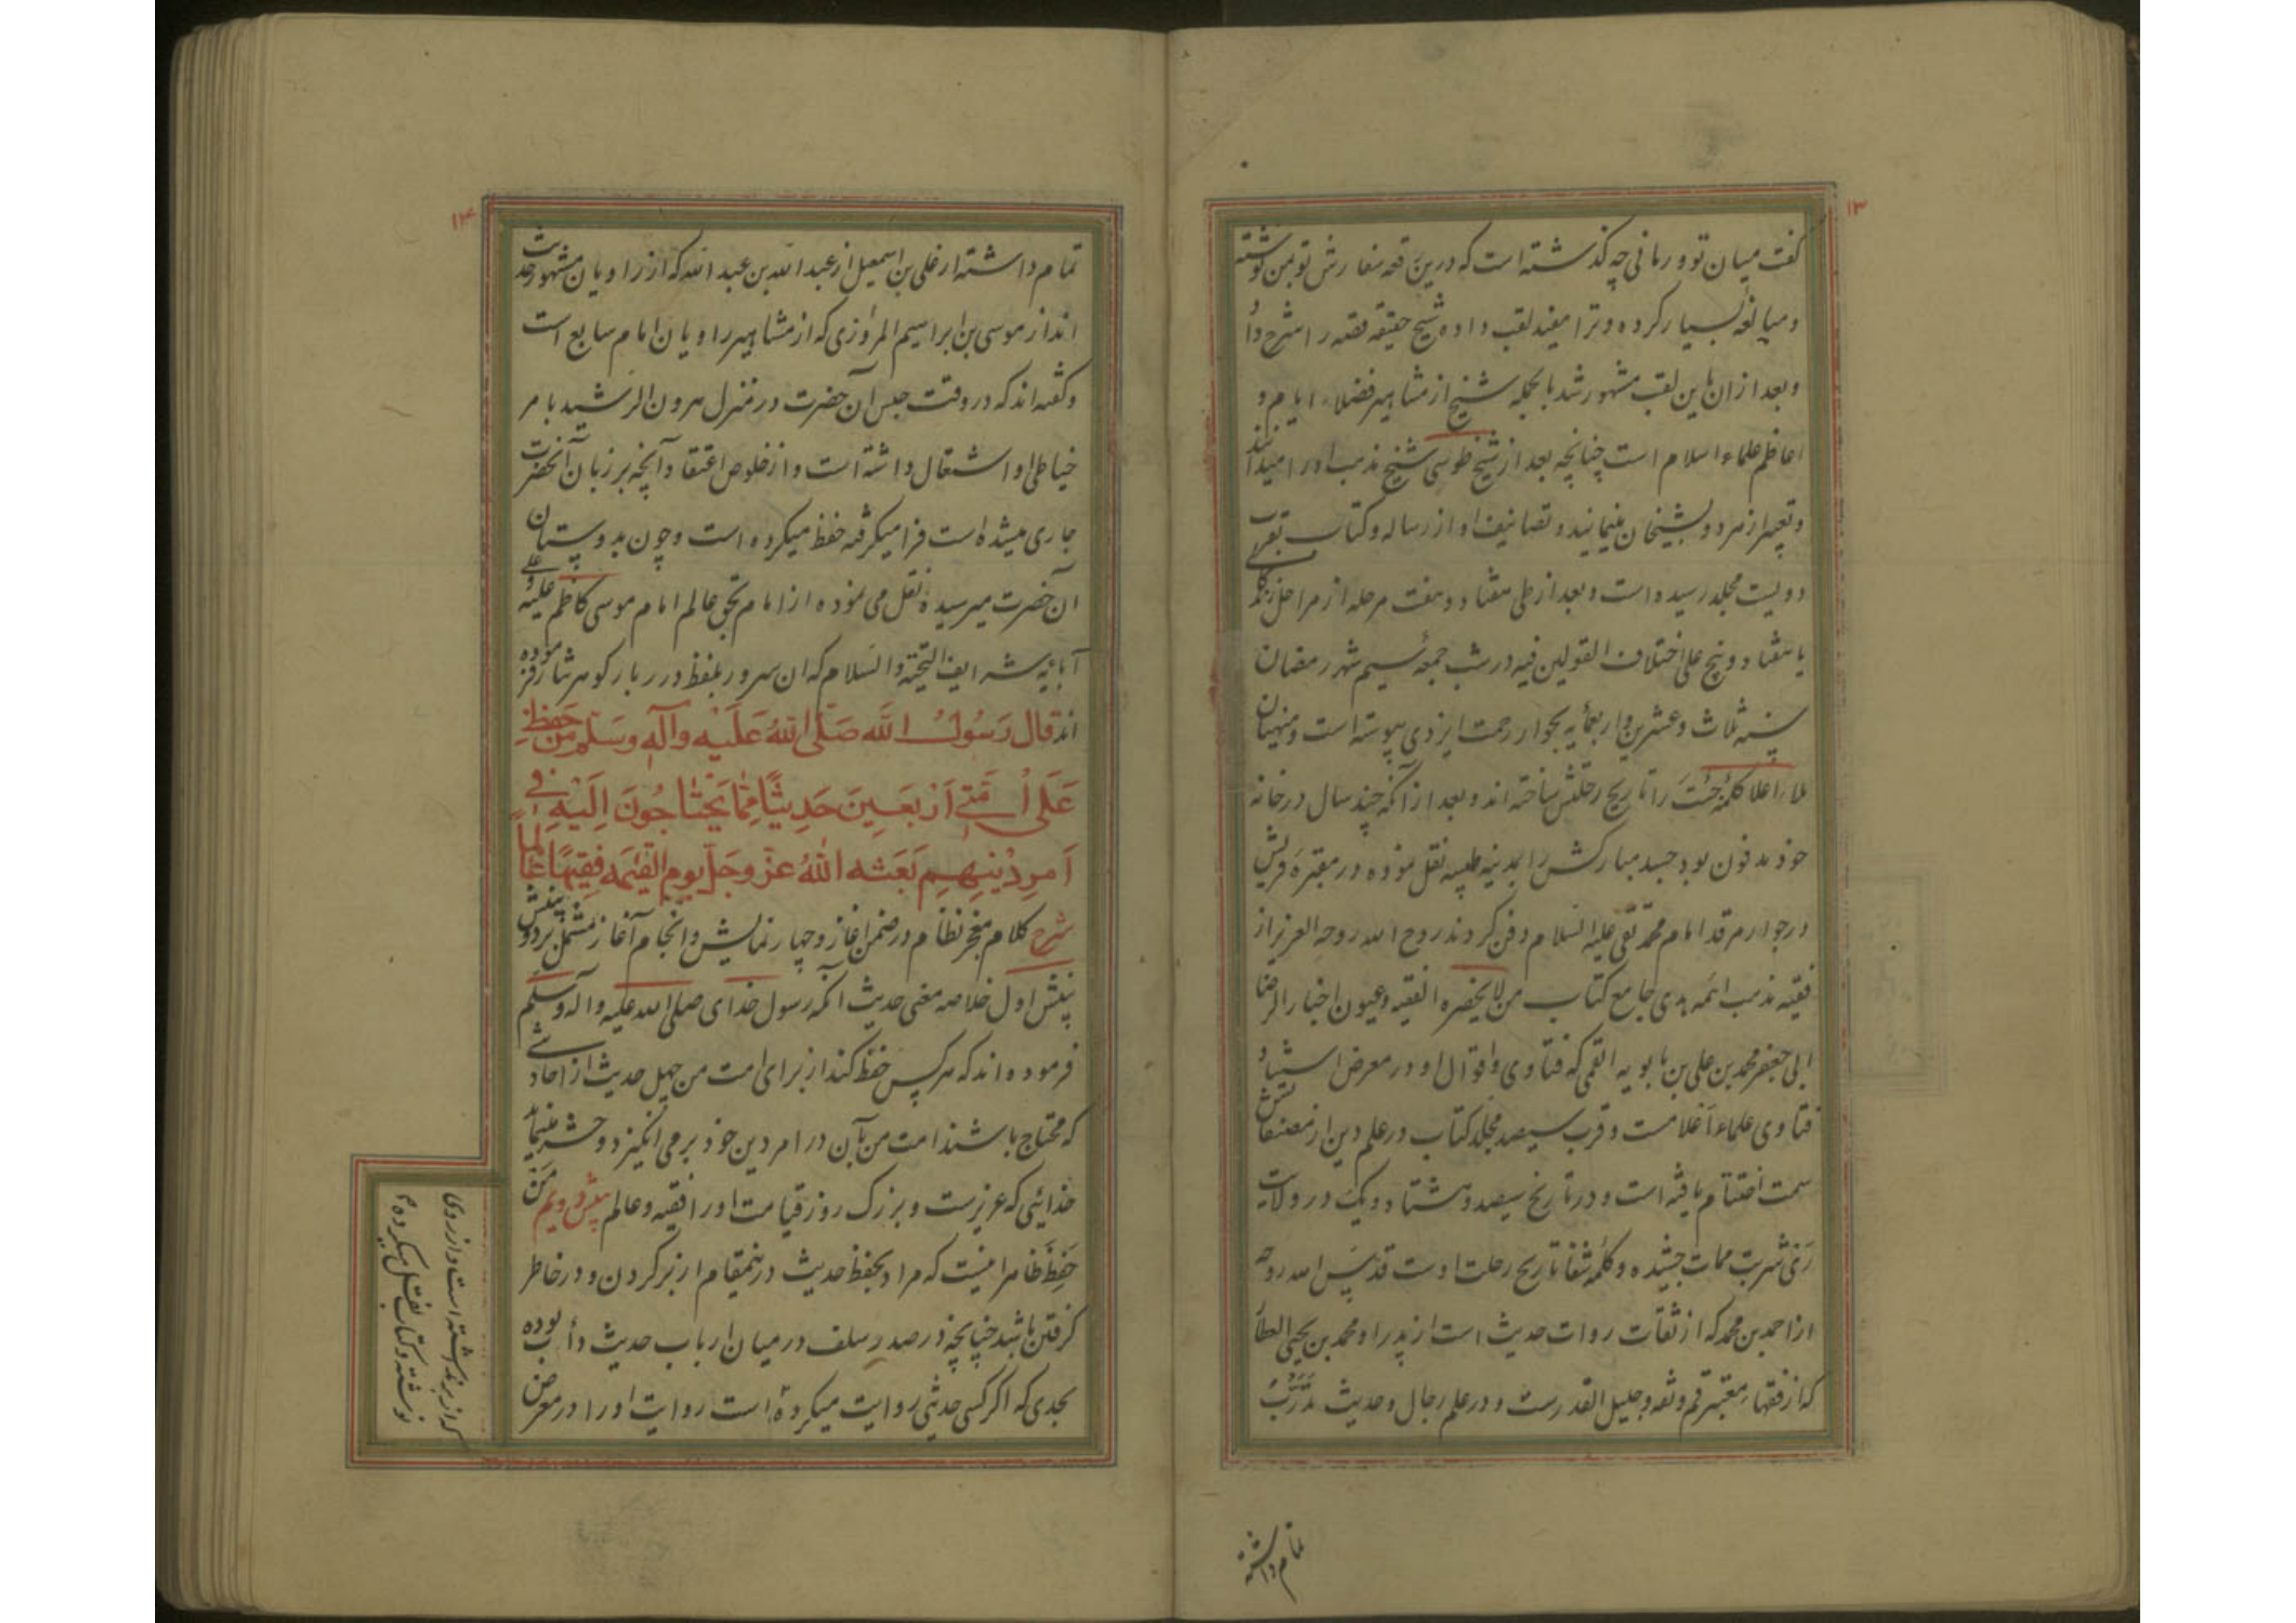 ۱۳
گفت میان تو و رمانی چه گذشته است که درین رقعه سفارش تو بمن نوشته
و مبالغه بسیار کرده و ترا مفید لقب داده شیخ حقیقة قصه را شرح داد
و بعد ازان باین لقب مشهور شد بالجمله شیخ از مشاهیر فضلاء ایام و
اعاظم علماء اسلام است چنانچه بعد از شیخ طوسی شیخ مذهب اورا میدانند
و تعبیر از هر دو بشیخان مینمایند و تصانیف او از رساله و کتاب بقرب
دویست مجلد رسیده است و بعد از طی هفتاد و هفت مرحله از مراحل زندگی
یا هفتاد و پنج علی اختلاف القولین فیه در شب جمعه سیم شهر رمضان
سنه ثلاث و عشرین و اربعمایه بجوار رحمت ایزدی پیوسته است و منهیان
ملاء اعلا کلمه جُسْتَ را تاریخ رحلتش ساخته اند و بعد از آنکه چند سال در خانه
خود مدفون بود جسد مبارکش را بمدینه طیبه نقل نموده در مقبره قریش
در جوار مرقد امام محمد تقی علیه السلام دفن کردند روح الله روحه العزیز از
فقیه مذهب ائمه هدی جامع کتاب من لایحضره الفقیه و عیون اخبار الرضا
ابی جعفر محمد بن علی بن بابویه القمی که فتاوی و اقوال او در معرض استشهاد
فتاوی علماء اعلامست و قرب سیصد مجلد کتاب در علم دین از مصنفاتش
سمت اختتام یافته است و در تاریخ سیصد و هشتاد و یک در ولایت
ری شربت ممات چشیده و کلمه شفا تاریخ رحلت اوست قدس الله روحه
از احمد بن محمد که از ثقات روات حدیث است از پدر او محمد بن یحیی العطار
که از فقهاء معتبر قم و ثقه و جلیل القدرست و در علم رجال و حدیث تدرب
تمام داشته
۱۴
تمام داشته از علی بن اسمعیل از عبد الله بن عبد الله که از راویان مشهور حدیث
اند از موسی بن ابراسیم المروزی که از مشاهیر راویان امام سابع است
و گفته اند که در وقت حبس آن حضرت در منزل هرون الرشید بامر
خیاطی او اشتغال داشته است و از خلوص اعتقاد آنچه بر زبان آنحضرت
جاری میشده است فرا میگرفته حفظ میکرده است و چون بدوستان
آن حضرت میرسیده نقل می نموده از امام بحق عالم امام موسی کاظم علیه و علی
آبائه شرایف التحیة و السلام که ان سرور بلفظ درر بار گوهر نثار فرموده
اند قال رَسُولُ الله صَلَّی اللهُ عَلَیْه وآلهِ وَسَلَّم مَنْ حَفِظَ
عَلَی اُمَّتِی اَرْبَعِینَ حَدِیثًا مِمَّا یَحْتٰاجُونَ اِلَیْهِ فِی
اَمرِ دٖینِهِم بَعَثَه اللهُ عَزَّ وجَلَّ یوم القیٰمه فَقِیهًا عَالِمًا
شرح کلام معجز نظام در ضمن اغاز و چهار نمایش و انجام آغاز مشتمل بر دو بینش
بینش اول خلاصه معنی حدیث آنکه رسول خدای صلی الله علیه و آله و سلم
فرموده اند که هر کس حفظ کند از برای امت من چهل حدیث از احادیثی
که محتاج باشند امت من بآن در امر دین خود برمی انگیزد و حشر مینماید
خدائی که عزیزست و بزرک روز قیامت اورا فقیه و عالم بینش دویم مَنْ
حَفِظَ ظاهرا اینست که مراد بحفظ حدیث درینمقام از بر کردن و در خاطر
گرفتن باشد چنانچه در صدر سلف در میان ارباب حدیث دأب بوده
بحدی که اگر کسی حدیثی روایت میکرده است روایت اورا در معرض
که از بر نداشته است و از روی
نوشته و کتاب نقل میکرده